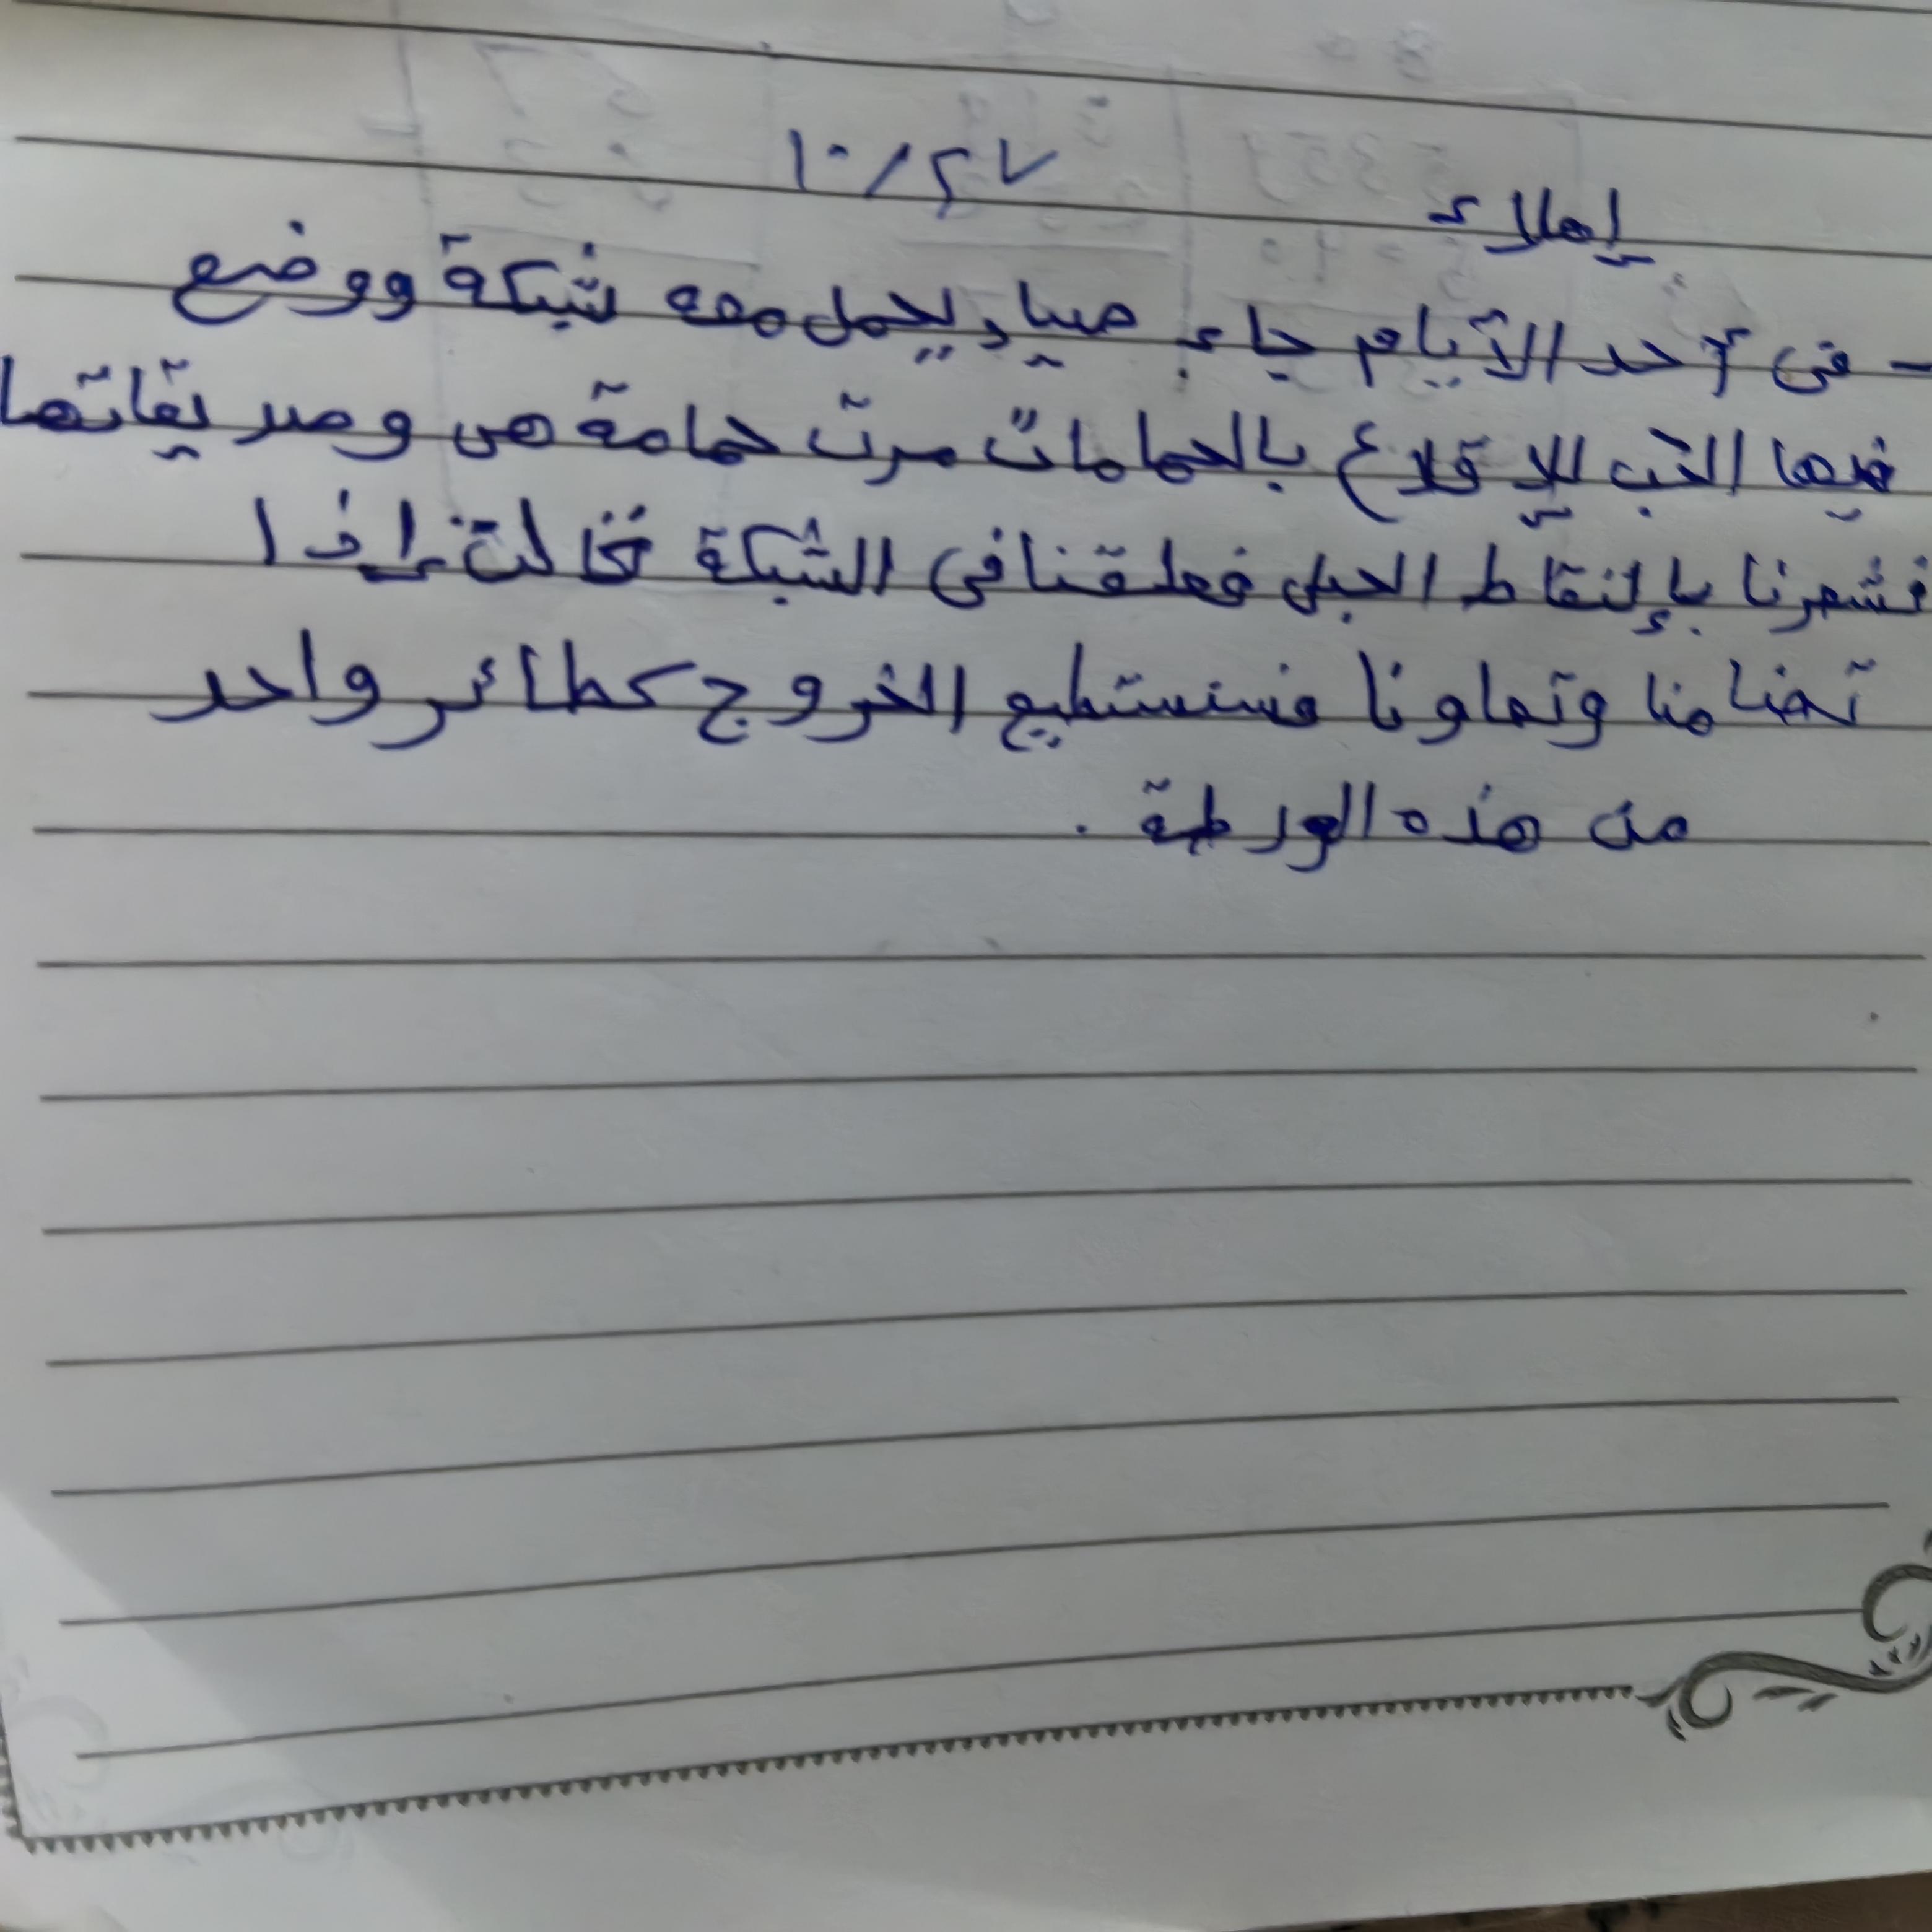 إملاء ١٠/٢٧
- فى أحد الأيام جاء صياد يحمل معه شبكة ووضع
فيها الحب للإقلاع بالحمامات مرت حمامة هى وصديقاتها
فشعرنا بإلتقاط الحبل فعلقنا فى الشبكة فقالت إذا
تضامنا وتعاونا فسنستطيع الخروج كطائر واحد
من هذه الورطة .